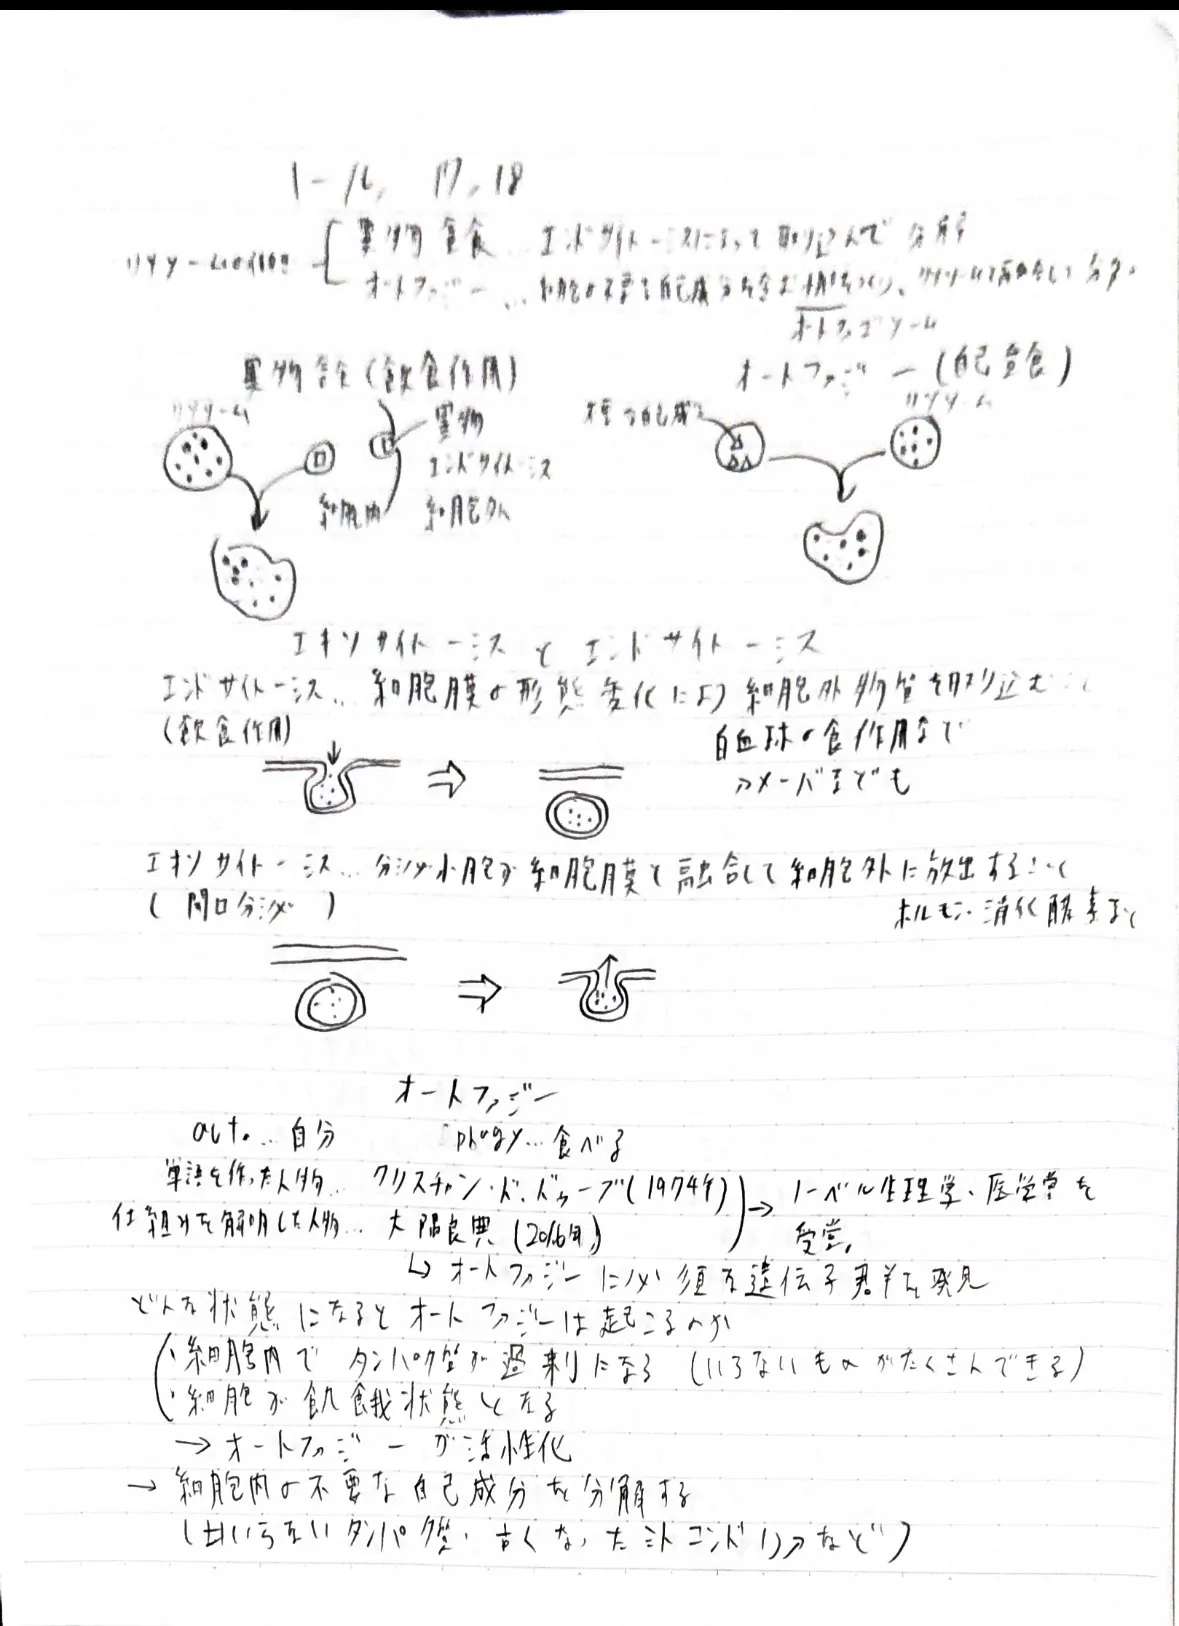 1-16, 17, 18
リソソームの役割
異物貪食… エンドサイトーシスによって取り込んで分解
オートファジー… 細胞の不要な自己成分を含む 、リソソームと融合して分解
オートファゴソーム
異物貪食(飲食作用)
オートファジー (自己貪食)
リソソーム
異物
エンドサイトーシス
細胞内
細胞外
不要な自己成分
リソソーム
エキソサイトーシスとエンドサイトーシス
エンドサイトーシス… 細胞膜の形態変化により細胞外物質を取り込むこと
(飲食作用)
白血球の食作用など
アメーバなども
エキソサイトーシス… 分泌小胞が細胞膜と融合して細胞外に放出すること
(開口分泌)
ホルモン・消化酵素など
オートファジー
auto… 自分
phagy… 食べる
単語を作った人物… クリスチャン・ド・デューブ(1974年)
仕組みを解明した人物… 大隅良典(2016年)
→ ノーベル生理学・医学賞を
受賞。
↳ オートファジーに必須な遺伝子群を発見
どんな状態になるとオートファジーは起こるのか
・細胞内でタンパク質が過剰になる (いらないものがたくさんできる)
・細胞が飢餓状態となる
→ オートファジーが活性化
→ 細胞内の不要な自己成分を分解する
いらないタンパク質・古くなったミトコンドリアなど)